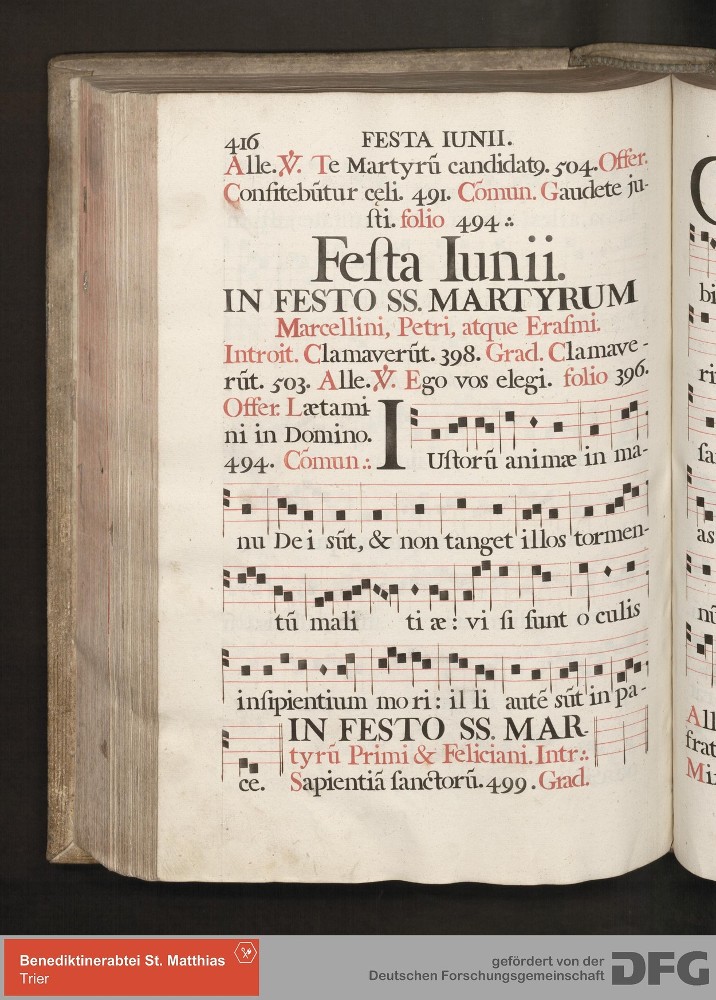 416 FESTA IUNII.
Alle. ℣. Te Martyrũ candidatꝯ. 504. Offer.
Confitebũtur cęli. 491. Cõmun. Gaudete ju-
ſti. folio 494 ⁖
Feſta Iunii.
IN FESTO SS. MARTYRUM
Marcellini, Petri, atque Eraſmi.
Introit. Clamaverũt. 398. Grad. Clamave-
rũt. 503. Alle. ℣. Ego vos elegi. folio 396.
Offer. Lætami-
ni in Domino.
494. Cõmun ⁖
IUſtorũ animæ in ma-
nu Dei sũt, & non tanget illos tormen-
tũ maliti æ: vi ſi ſunt oculis
inſipientium mori: illi autẽ sũt in pa-
ce.
IN FESTO SS. MAR-
tyrũ Primi & Feliciani. Intr ⁖
Sapientiã ſanctorũ. 499. Grad.
bi
ri
ſa
as
nũ
All
frat
Mi
Benediktinerabtei St. Matthias
Trier
gefördert von der
Deutschen Forschungsgemeinschaft
DFG